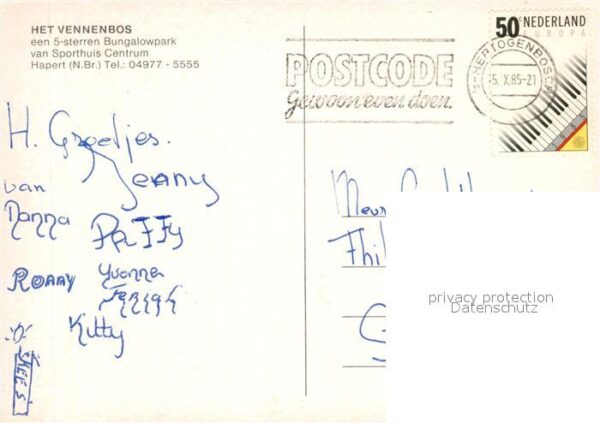 HET VENNENBOS
een 5-sterren Bungalowpark
van Sporthuis Centrum
Hapert (N.Br.) Tel.: 04977 - 5555
POSTCODE
Gewoon even doen.
's-HERTOGENBOSCH
5. X.85-21
50c NEDERLAND
EUROPA
1985
H. Groetjes.
Jeanny
van
Nanna
Paffy
Ronny
Yvonne
Kitty
KEES
Mevr
Phil
privacy protection
Datenschutz